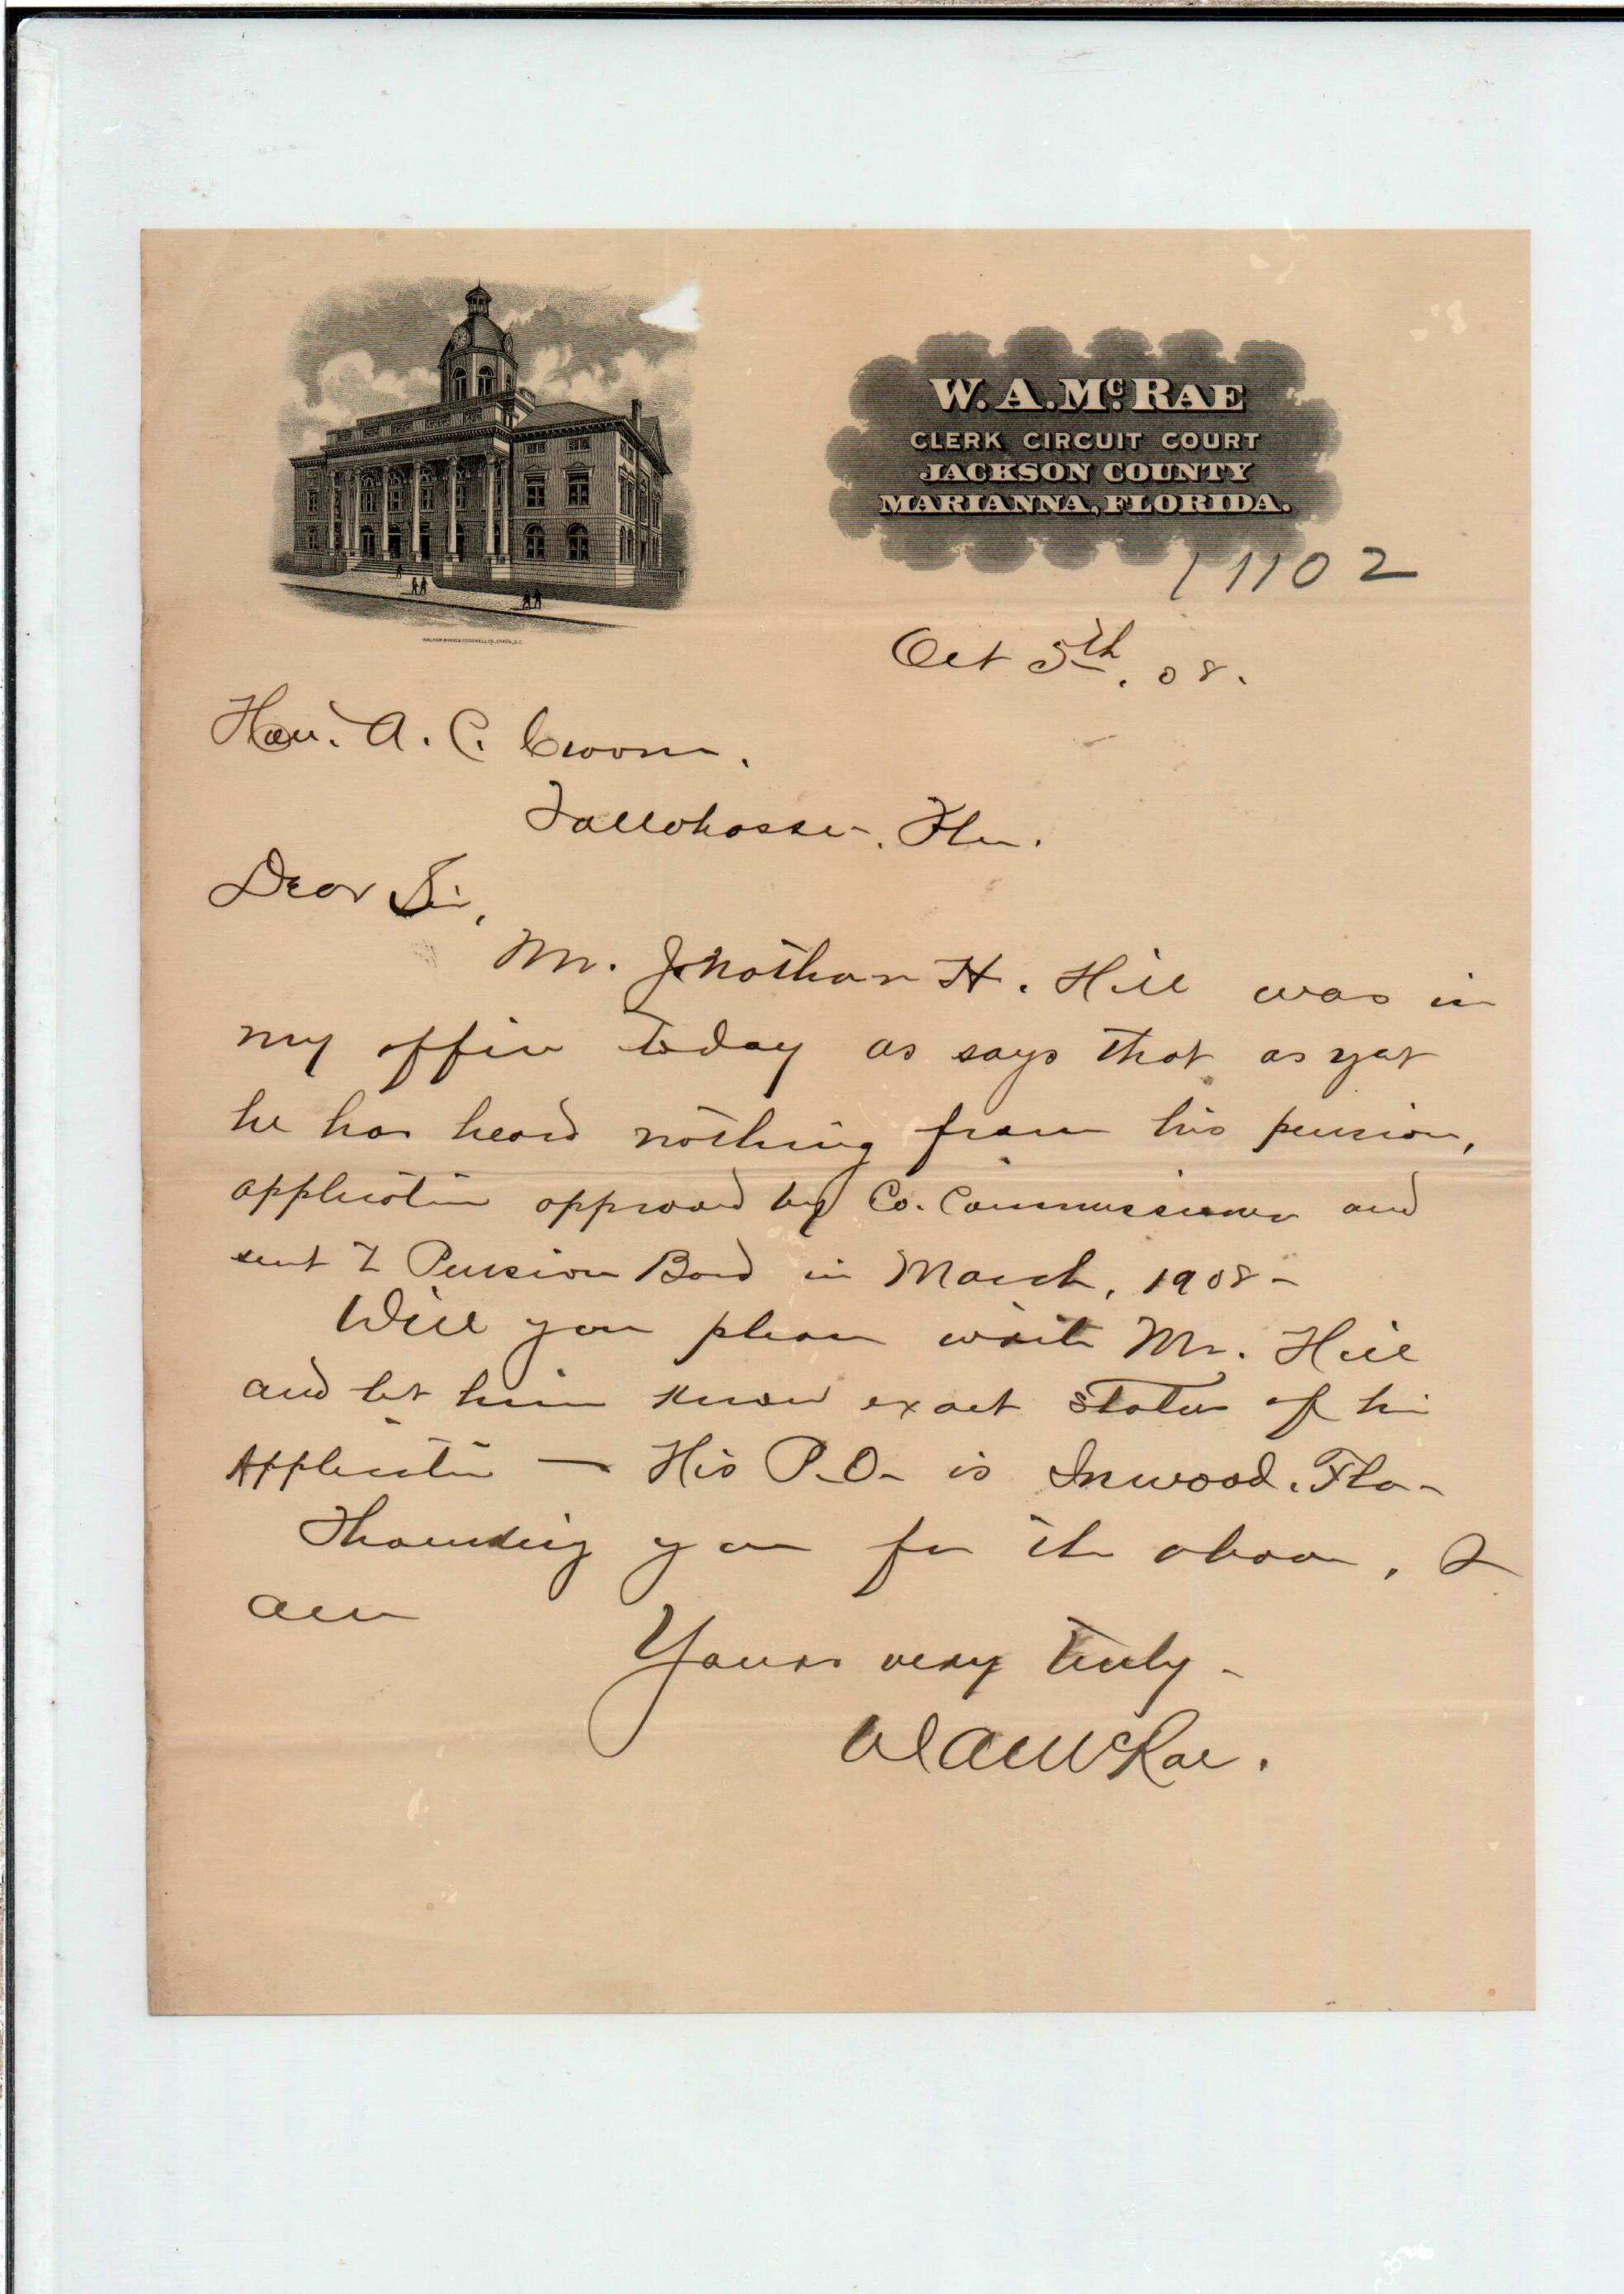 W. A. McRAE
CLERK CIRCUIT COURT
JACKSON COUNTY
MARIANNA, FLORIDA.
11102
Oct 5th, 08.
Hon. A. C. Croom.
Tallahassee, Fla.
Dear Sir,
Mr. Jonathan H. Hill was in
my office today as says that as yet
he has heard nothing from his pension,
application approved by Co. Commissioners and
sent to Pension Board in March, 1908-
Will you please write Mr. Hill
and let him know exact status of his
Application — His P.O. is Inwood. Fla-
Thanking you for the above, I
am
Yours very truly-
W A McRae.